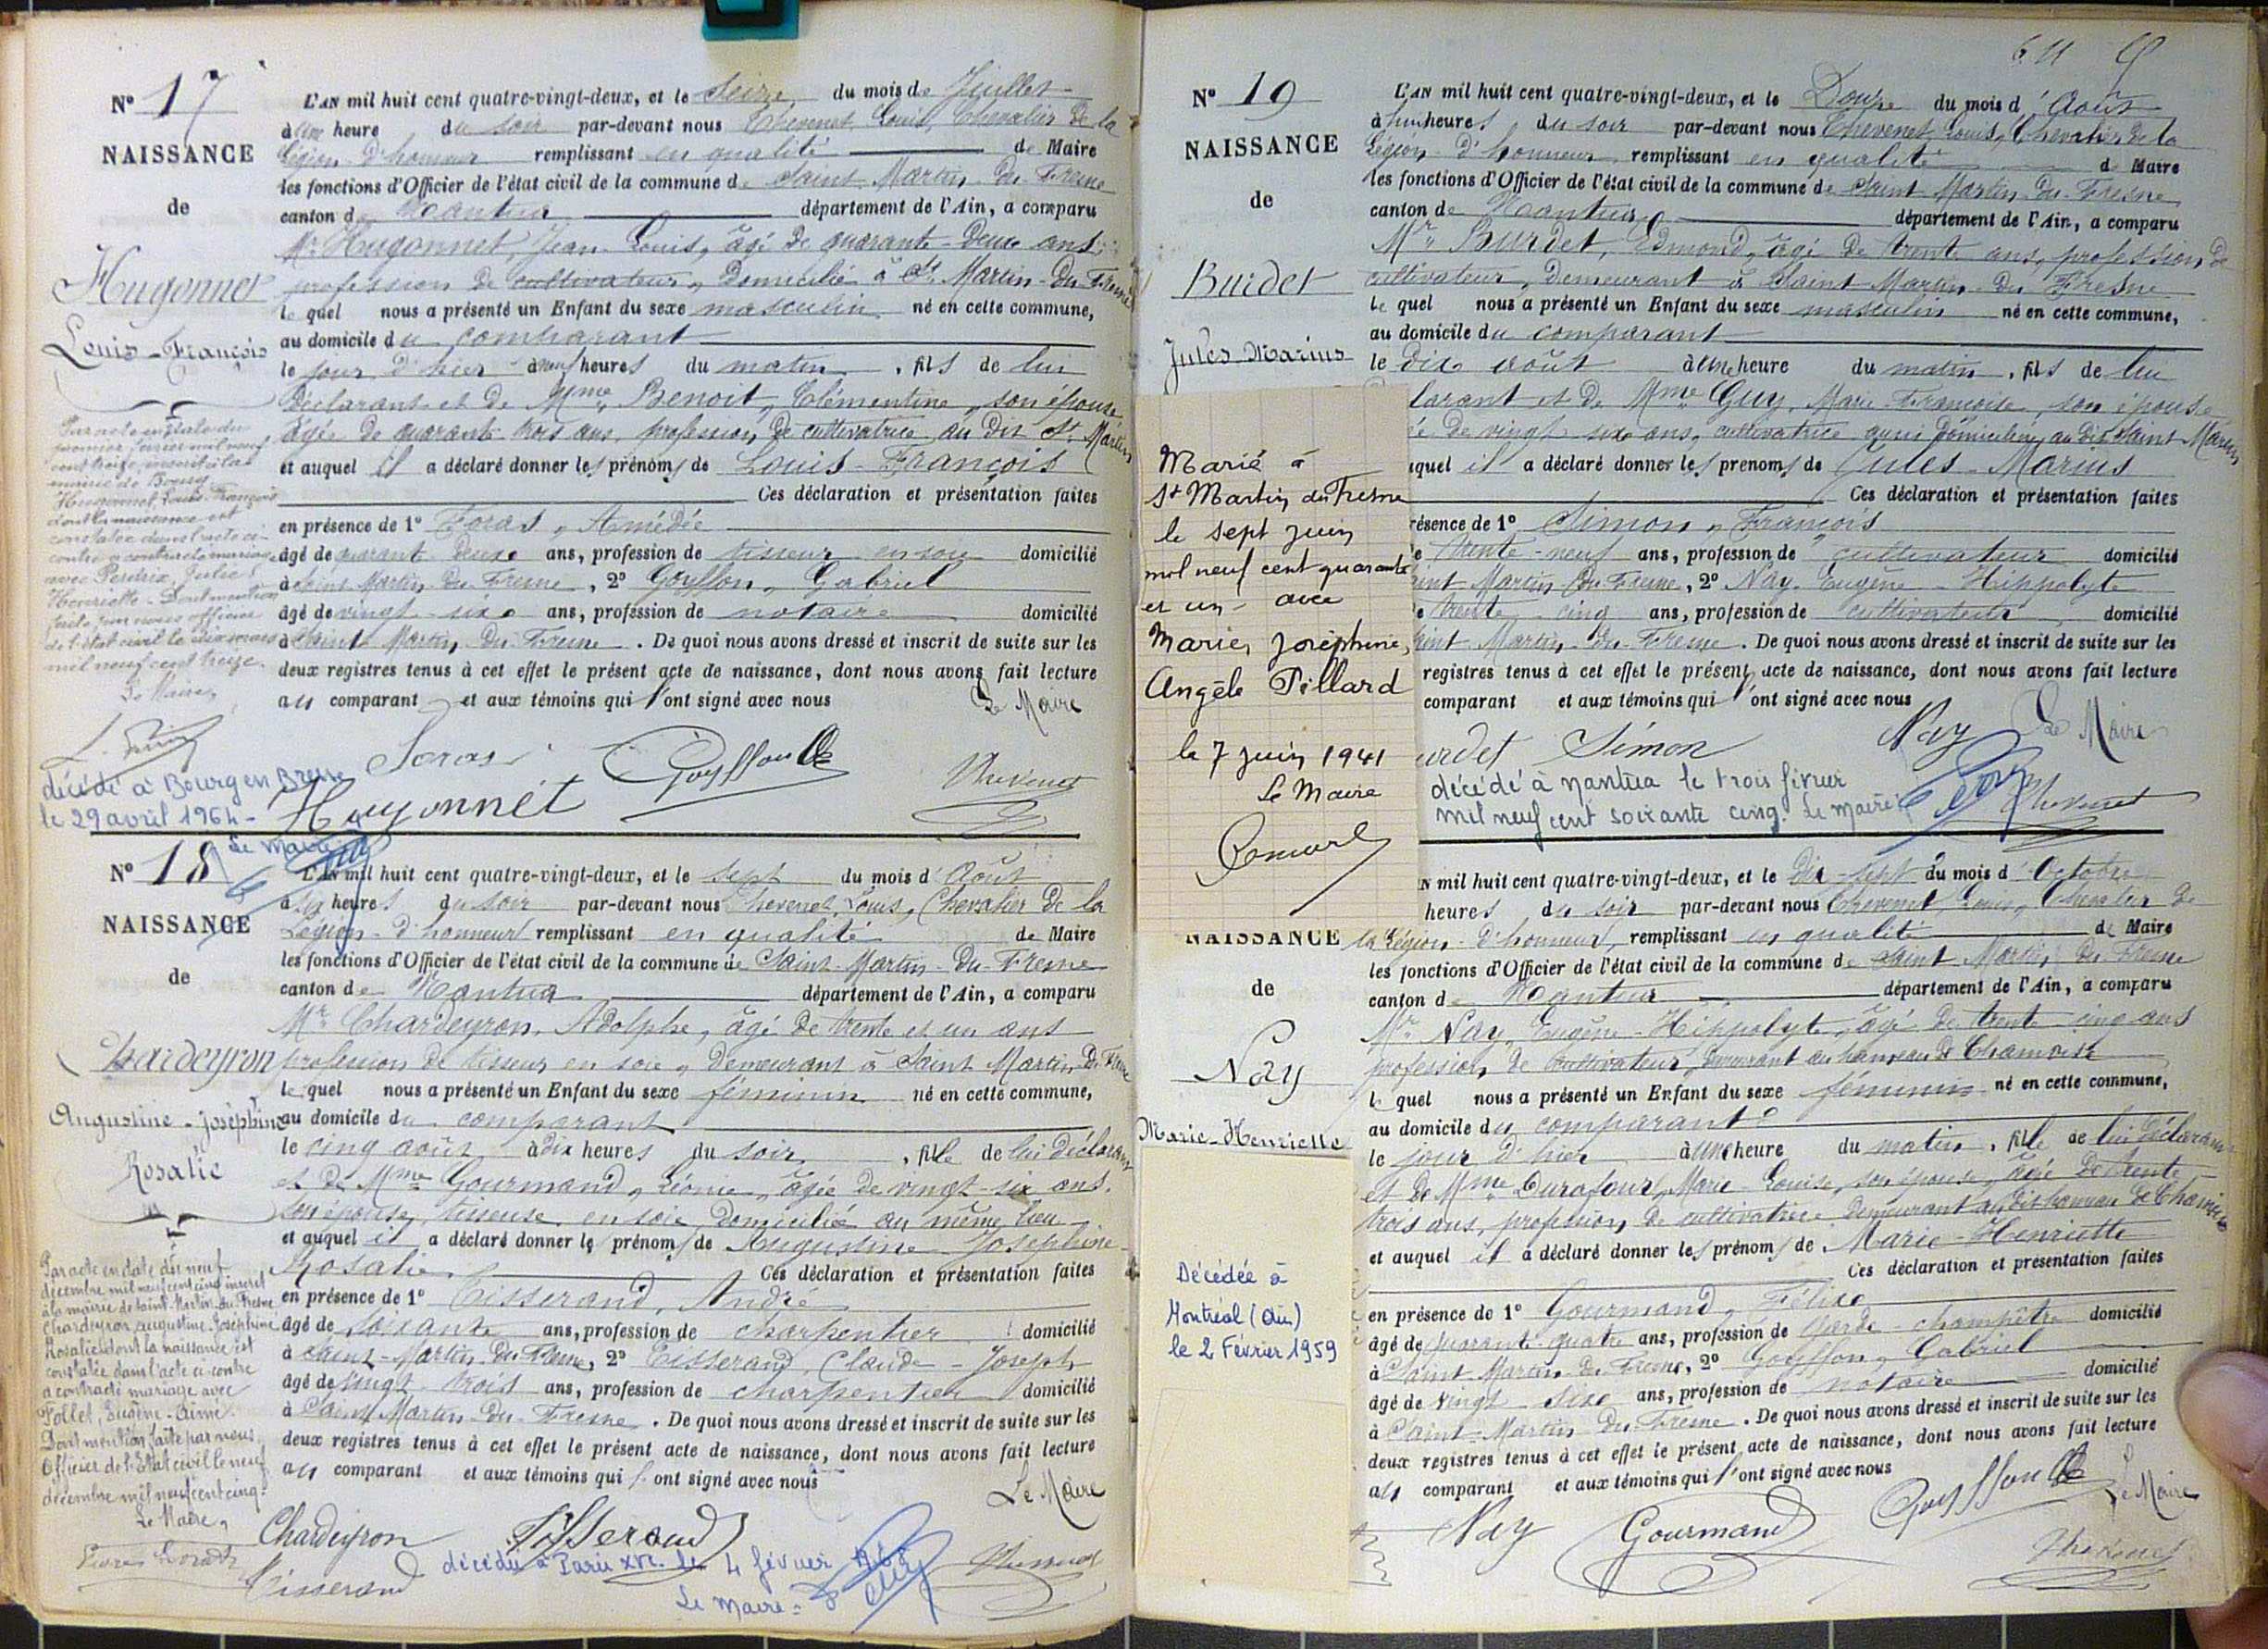 N° 17
NAISSANCE
de
Hugonnet
Louis-François
L'AN mil huit cent quatre-vingt-deux, et le seize du mois de Juillet
à une heure du soir par-devant nous Thevenet, Louis, Chevalier de la
Légion-d'honneur remplissant en qualité de Maire
les fonctions d'Officier de l'état civil de la commune de Saint-Martin-du-Fresne
canton de Nantua département de l'Ain, a comparu
Mr Hugonnet, Jean-Louis, âgé de quarante-deux ans
profession de cultivateur, domicilié à St Martin-du-Fresne
le quel nous a présenté un Enfant du sexe masculin né en cette commune,
au domicile du comparant
le jour d'hier à neuf heures du matin, fils de lui
déclarant et de Mme Benoit, Clémentine, son épouse
âgée de quarante-trois ans, profession de cultivatrice au dit St Martin
et auquel il a déclaré donner les prénoms de Louis-François
Ces déclaration et présentation faites
en présence de 1° Foras, Amédée
âgé de quarante-deux ans, profession de tisseur en soie domicilié
à Saint Martin du Fresne, 2° Goyffon, Gabriel
âgé de vingt-six ans, profession de notaire domicilié
à Saint Martin du Fresne. De quoi nous avons dressé et inscrit de suite sur les
deux registres tenus à cet effet le présent acte de naissance, dont nous avons fait lecture
au comparant et aux témoins qui l'ont signé avec nous
Le Maire
Par acte en date du
premier février mil neuf
cent treize, inscrit à la
mairie de Bourg
Hugonnet, Louis-François
dont la naissance est
constatée dans l'acte ci-
contre a contracté mariage
avec Perdrix, Julie
Henriette - Dont mention
faite par nous officier
de l'état civil le
mil neuf cent treize.
Le Maire,
Foras Goyffon Thevenet
Hugonnet
décédé à Bourg en Bresse
le 29 avril 1964 -
Le Maire
N° 18
NAISSANCE
de
Chardeyron
Augustine-Joséphine
Rosalie
L'AN mil huit cent quatre-vingt-deux, et le sept du mois d'Août
à six heures du soir par-devant nous Thevenet, Louis, Chevalier de la
Légion-d'honneur remplissant en qualité de Maire
les fonctions d'Officier de l'état civil de la commune de Saint-Martin-du-Fresne
canton de Nantua département de l'Ain, a comparu
Mr Chardeyron, Adolphe, âgé de trente et un ans
profession de tisseur en soie, demeurant à Saint Martin du Fresne
le quel nous a présenté un Enfant du sexe féminin né en cette commune,
au domicile du comparant
le cinq août à dix heures du soir, fille de lui déclarant
et de Mme Gourmand, Léonie, âgée de vingt-six ans.
son épouse, tisseuse en soie, domicilié au même lieu
et auquel il a déclaré donner les prénoms de Augustine-Joséphine
Rosalie Ces déclaration et présentation faites
en présence de 1° Tisserand, André
âgé de soixante ans, profession de charpentier domicilié
à Saint-Martin du Fresne, 2° Tisserand Claude-Joseph
âgé de vingt-trois ans, profession de charpentier domicilié
à Saint Martin-du-Fresne. De quoi nous avons dressé et inscrit de suite sur les
deux registres tenus à cet effet le présent acte de naissance, dont nous avons fait lecture
au comparant et aux témoins qui l'ont signé avec nous
Le Maire
Par acte en date du neuf
décembre mil neuf cent cinq inscrit
à la mairie de Saint-Martin-du-Fresne
Chardeyron Augustine-Joséphine
Rosalie dont la naissance est
constatée dans l'acte ci-contre
a contracté mariage avec
Follet, Eugène-Aimé.
Dont mention faite par nous
Officier de l'Etat civil le neuf
décembre mil neuf cent cinq.
Le Maire,
Chardeyron Tisserand
Tisserand Thevenet
décédée à Paris XVe le 4 février
Le Maire
N° 19
NAISSANCE
de
Burdet
Jules-Marius
L'AN mil huit cent quatre-vingt-deux, et le Douze du mois d'Août
à huit heures du soir par-devant nous Thevenet, Louis, Chevalier de la
Légion-d'honneur remplissant en qualité de Maire
les fonctions d'Officier de l'état civil de la commune de Saint-Martin-du-Fresne
canton de Nantua département de l'Ain, a comparu
Mr Burdet, Edmond, âgé de trente ans, profession de
cultivateur, demeurant à Saint Martin-du-Fresne
le quel nous a présenté un Enfant du sexe masculin né en cette commune,
au domicile du comparant
le dix août à une heure du matin, fils de lui
larant et de Mme Guy, Marie-Françoise, son épouse
de vingt-six ans, cultivatrice aussi domiciliée au dit Saint Martin
quel il a déclaré donner les prénoms de Jules-Marius
Ces déclaration et présentation faites
résence de 1° Simon, François
trente-neuf ans, profession de cultivateur domicilié
int Martin du Fresne, 2° Nay, Eugène-Hippolyte
trente-cinq ans, profession de cultivateur domicilié
int Martin-du-Fresne. De quoi nous avons dressé et inscrit de suite sur les
registres tenus à cet effet le présent acte de naissance, dont nous avons fait lecture
comparant et aux témoins qui l'ont signé avec nous
Le Maire
urdet Simon Nay Thevenet
décédé à Nantua le trois février
mil neuf cent soixante cinq. Le maire
Marié à
St Martin du Fresne
le sept juin
mil neuf cent quarante
et un - avec
Marie, Joséphine,
Angèle Pillard
le 7 juin 1941
Le Maire
NAISSANCE
de
Nay
Marie-Henriette
N mil huit cent quatre-vingt-deux, et le Dix-sept du mois d'Octobre
heures du soir par-devant nous Thevenet, Louis, Chevalier de
la Légion-d'honneur, remplissant en qualité de Maire
les fonctions d'Officier de l'état civil de la commune de Saint Martin du Fresne
canton de Nantua département de l'Ain, a comparu
Mr Nay, Eugène-Hippolyte, âgé de trente-cinq ans
profession de cultivateur, demeurant au hameau de Chamoise
le quel nous a présenté un Enfant du sexe féminin né en cette commune,
au domicile du comparant
le jour d'hier à une heure du matin, fille de lui déclarant
et de Mme Durafour, Marie-Louise, son épouse, âgée de trente
trois ans, profession de cultivatrice demeurant au dit hameau de Chamoise
et auquel il a déclaré donner les prénoms de Marie-Henriette
Ces déclaration et présentation faites
en présence de 1° Gourmand, Félix
âgé de quarante-quatre ans, profession de garde champêtre domicilié
à Saint Martin-du-Fresne, 2° Goyffon, Gabriel
âgé de vingt-six ans, profession de notaire domicilié
à Saint-Martin du Fresne. De quoi nous avons dressé et inscrit de suite sur les
deux registres tenus à cet effet le présent acte de naissance, dont nous avons fait lecture
au comparant et aux témoins qui l'ont signé avec nous
Le Maire
Nay Gourmand Goyffon Thevenet
Décédée à
Montréal (Ain)
le 2 Février 1959